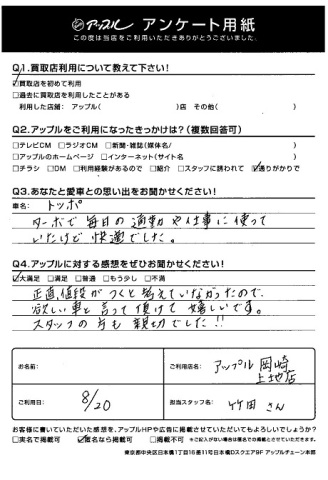 アップル アンケート用紙
この度は当店をご利用いただきありがとうございました。
Q.1.買取店利用について教えて下さい!
☑買取店を初めて利用
□過去に買取店を利用したことがある
利用した店舗: アップル( )店 その他( )
Q.2.アップルをご利用になったきっかけは?(複数回答可)
□テレビCM □ラジオCM □新聞・雑誌(媒体名/ )
□アップルのホームページ □インターネット(サイト名 )
□チラシ □DM □利用経験があるので □紹介 □スタッフに誘われて ☑通りがかりで
Q.3.あなたと愛車との思い出をお聞かせください!
車名: トッポ
ターボで毎日の通勤や仕事に使って
いたけど快適でした。
Q.4.アップルに対する感想をぜひお聞かせください!
☑大満足 □満足 □普通 □もう少し □不満
正直、値段がつくと考えていなかったので、
欲しい車と言って頂けて嬉しいです。
スタッフの方も親切でした!!
お名前:
ご利用店名: アップル岡崎
上地店
ご利用日: 8/20
担当スタッフ名: 竹田さん
お客様に書いていただいた感想を、アップルHPや広告に掲載させていただいてもよろしいでしょうか?
□実名で掲載可 ☑匿名なら掲載可 □掲載不可 ※ご記入が無い場合は匿名での掲載とさせていただきます。
東京都中央区日本橋1丁目16番11号日本橋Dスクエア9F アップルチェーン本部